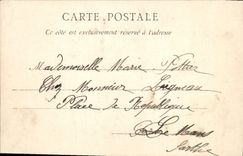 CARTE POSTALE
Ce côté est exclusivement réservé à l'adresse
Mademoiselle Marie
Chez Monsieur
Place de République
Mans
Sarthe